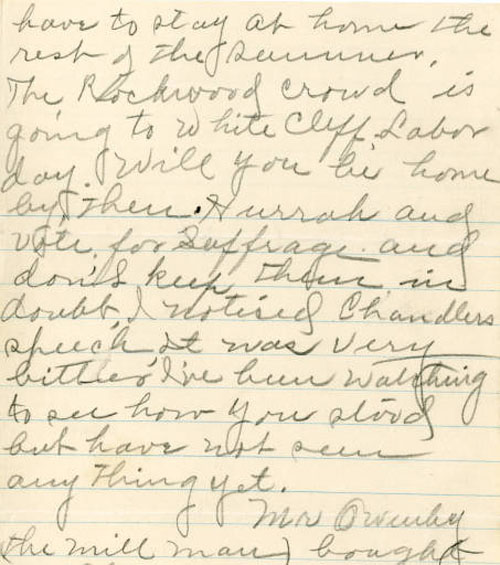 have to stay at home the
rest of the summer.
The Rockwood crowd is
going to White Cliff Labor
day. Will you be home
by then. Hurrah and
vote for Suffrage and
don't keep them in
doubt, I notised Chandlers
speech, it was very
bitter, I've been watching
to see how you stood
but have not seen
anything yet.
Mr
(the mill man) bought